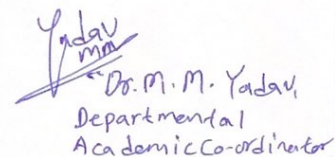 Yadav
mm
Dr. M. M. Yadav,
Departmental
Academic Co-ordinator